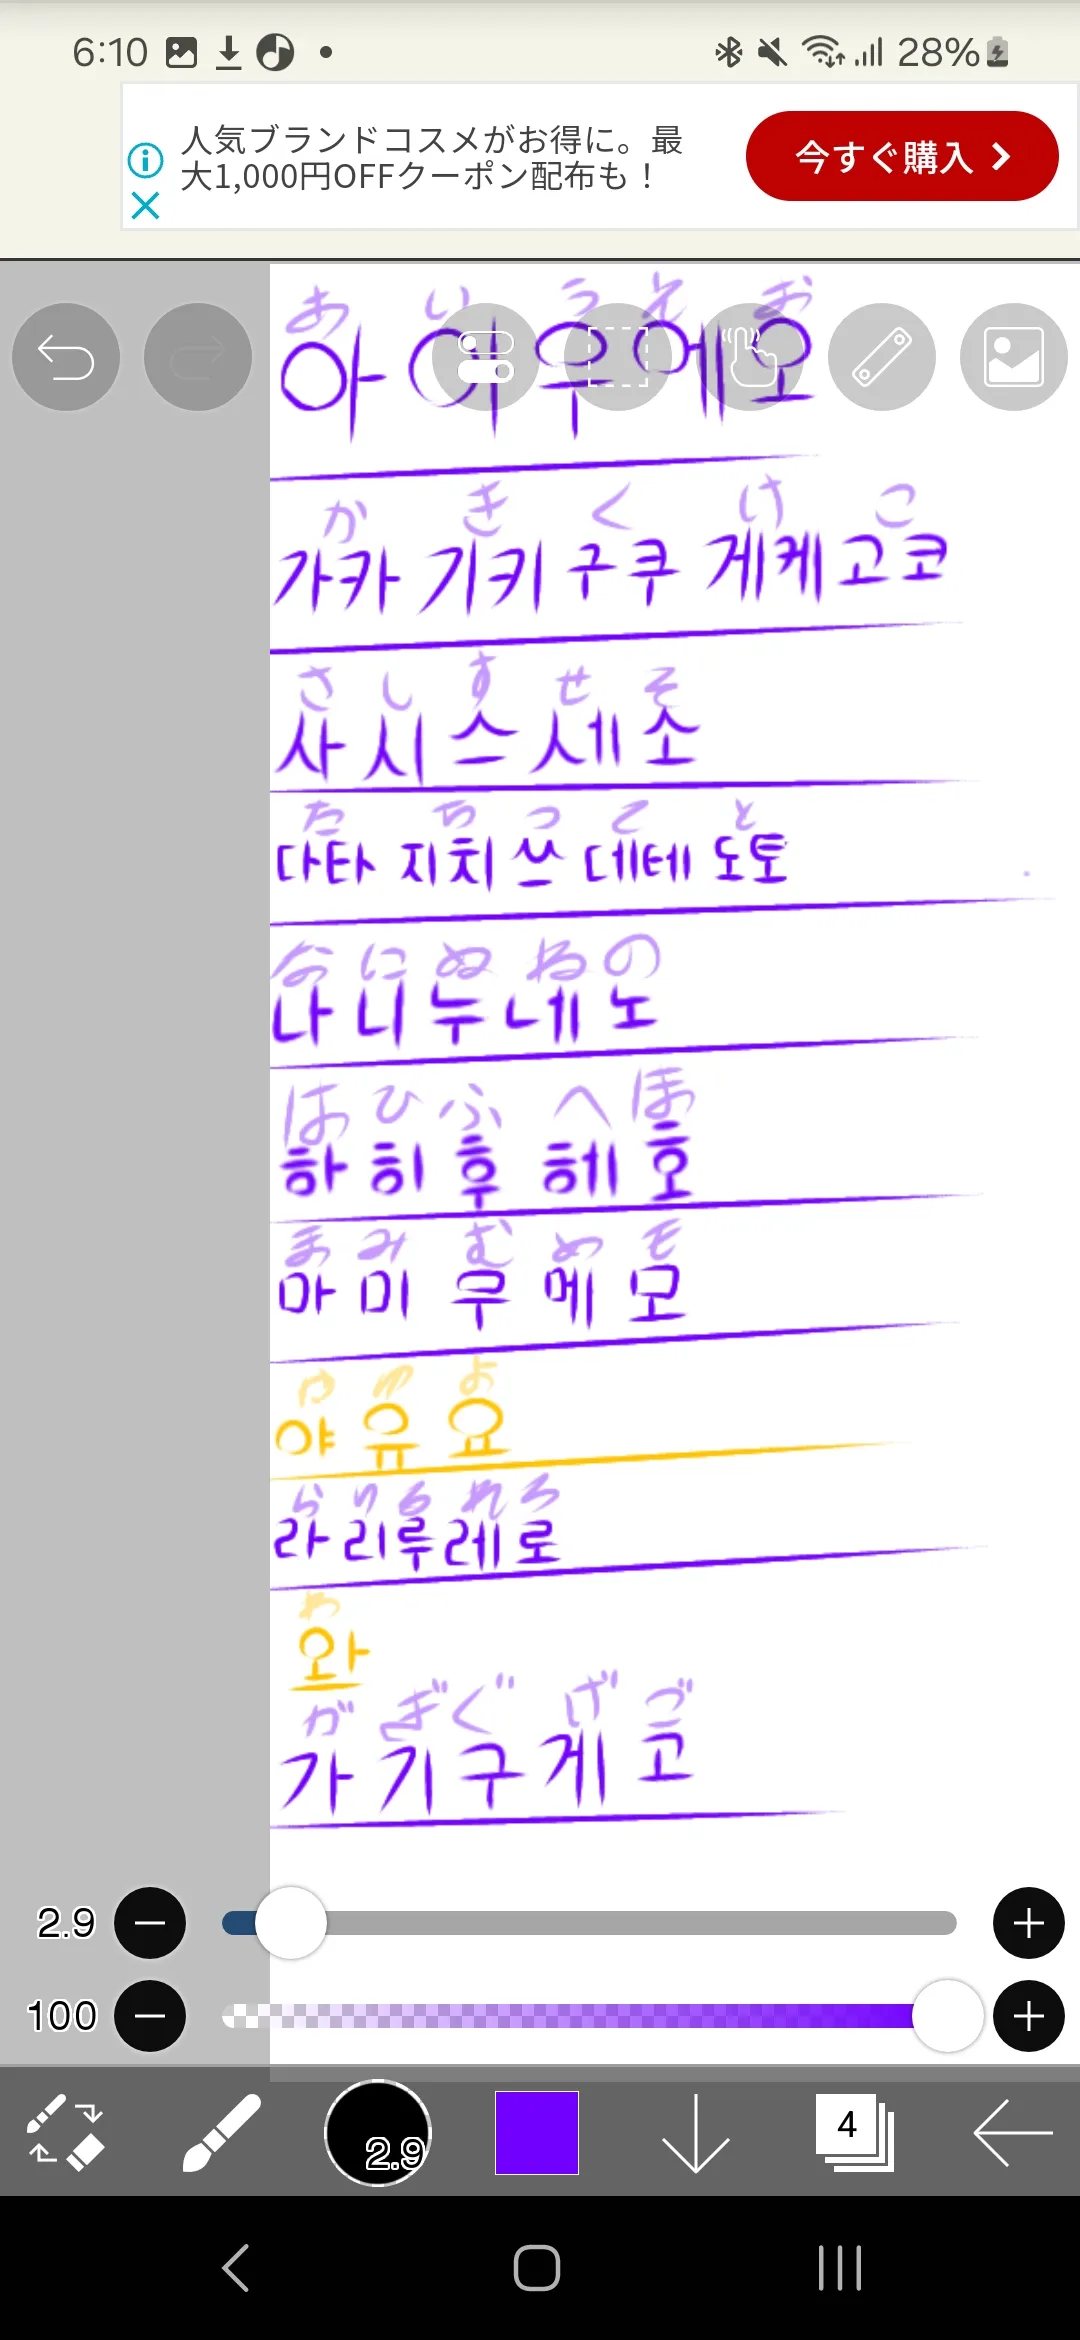 6:10 28%
人気ブランドコスメがお得に。最
大1,000円OFFクーポン配布も！
今すぐ購入
あ い う え お
아 이 우 에 오
か き く け こ
가카 기키 구쿠 게케 고코
さ し す せ そ
사 시 스 세 소
た ち つ て と
다타 지치 쓰 데테 도토
な に ぬ ね の
나 니 누 네 노
は ひ ふ へ ほ
하 히 후 헤 호
ま み む め も
마 미 무 메 모
や ゆ よ
야 유 요
ら り る れ ろ
라 리 루 레 로
わ
와
が ぎ ぐ げ ご
가 기 구 게 고
2.9
100
2.9
4